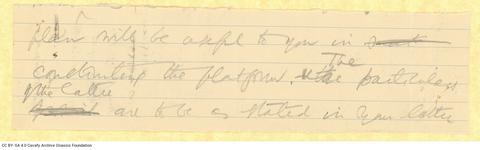 plan will be useful to you in
constructing the platform. The particulars
of the latter
are to be as stated in your letter
CC BY-SA 4.0 Cavafy Archive Onassis Foundation